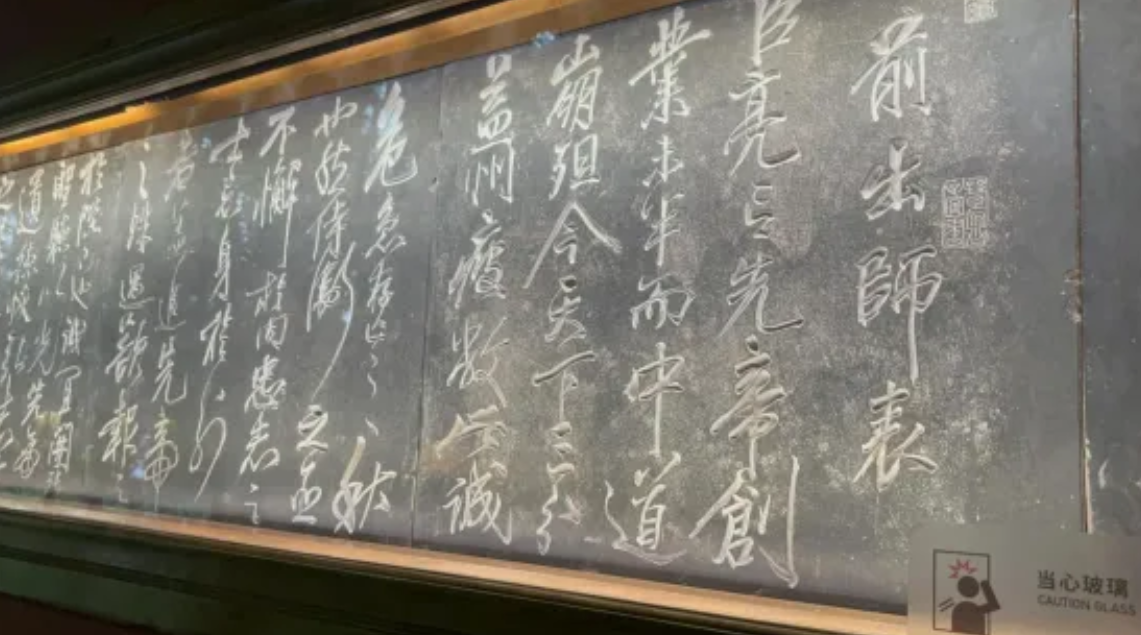 前出師表
臣亮言先帝創
業未半而中道
崩殂今天下三分
益州疲敝此誠
危急存亡之秋
也然侍衛之臣
不懈於内忠志之
士忘身於外
者蓋追先帝
之殊遇欲報之
於陛下也誠宜開張
聖聽以光先帝
遺德恢弘志士
当心玻璃
CAUTION GLASS